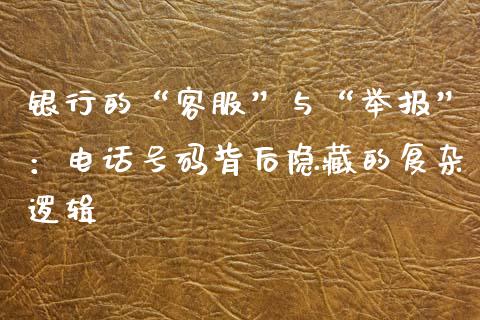 银行的“客服”与“举报”
：电话号码背后隐藏的复杂
逻辑